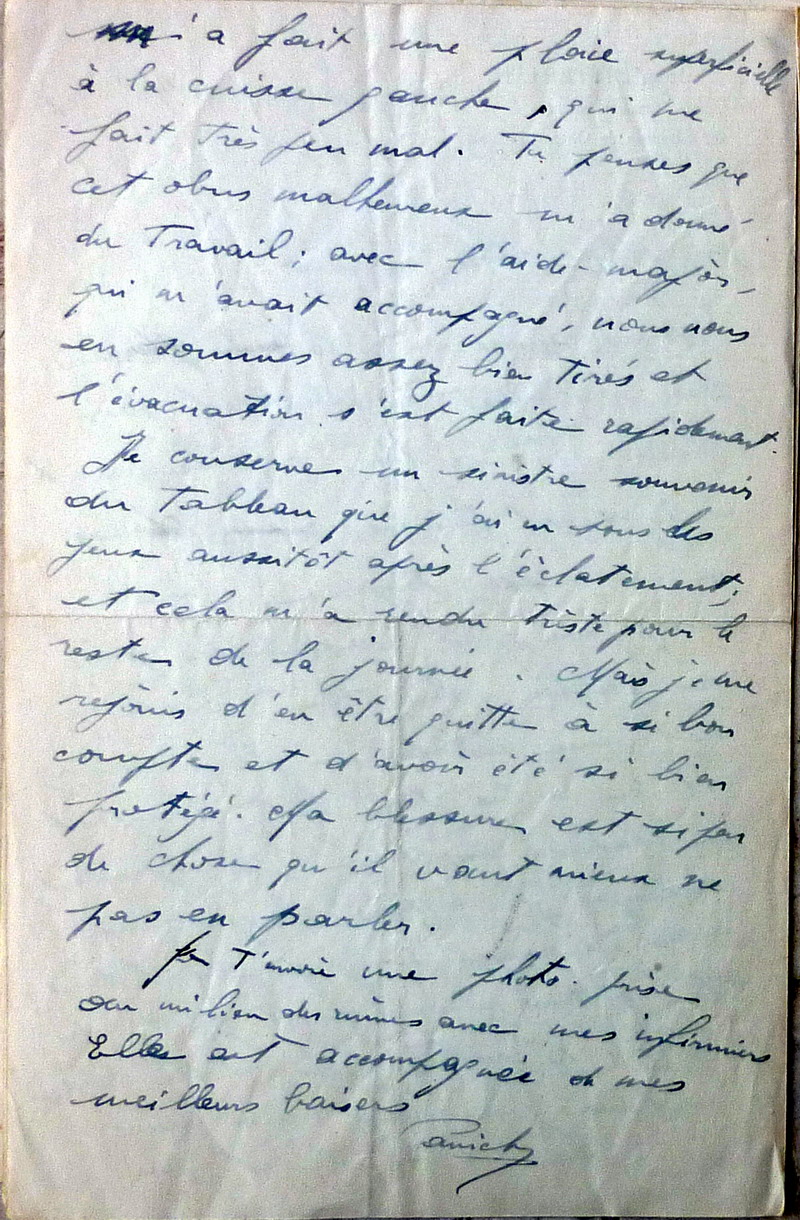 m'a fait une plaie superficielle
à la cuisse gauche, qui me
fait très peu mal. Tu penses que
cet obus malheureux m'a donné
du Travail; avec l'aide-major,
qui m'avait accompagné, nous nous
en sommes assez bien Tirés et
l'évacuation s'est faite rapidement.
Je conserve un sinistre souvenir
du Tableau que j'ai eu sous les
yeux aussitôt après l'éclatement;
et cela m'a rendu triste pour le
reste de la journée. Mais je me
réjouis d'en être quitte à si bon
compte et d'avoir été si bien
protégé. Ma blessure est si peu
de chose qu'il vaut mieux ne
pas en parler.
Je T'envoie une photo prise
au milieu des ruines avec mes infirmiers
Elle est accompagnée de mes
meilleurs baisers